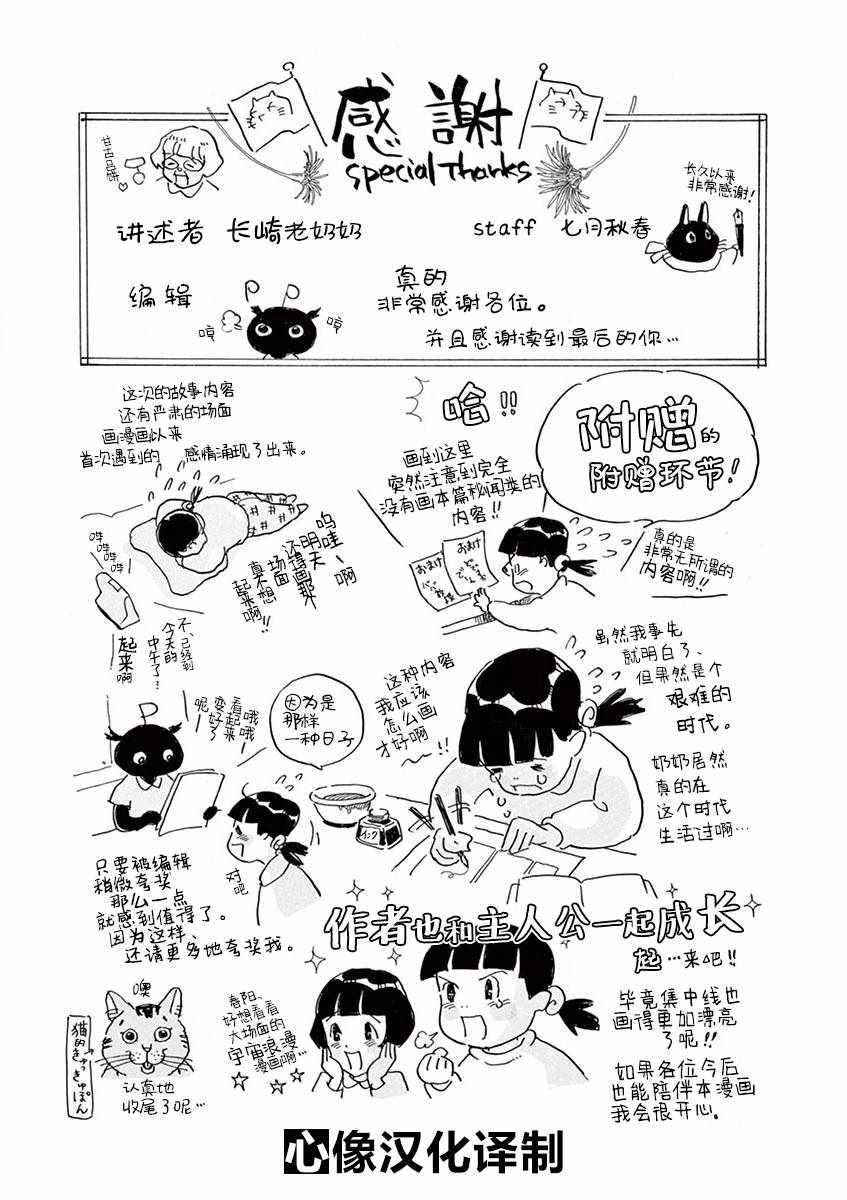 感謝
Special Thanks
甘古品餅♡
讲述者 长崎老奶奶
staff 七月秋春
长久以来
非常感谢!
编辑
哼
哼
真的
非常感谢各位。
并且感谢读到最后的你…
附赠的
附赠环节!
真的是
非常无所谓的
内容啊!!
哈!!
画到这里
突然注意到完全
没有画本篇秘闻类的
内容!!
おまけ
おまけ
这次的故事内容
还有严肃的场面
画漫画以来
首次遇到的 感情涌现了出来。
呜哇~啊
明天
还得画那
场面
真不想
起来啊!!
哔
哔
哔
哔
不、已经到
今天的
中午了…
起来啊
虽然我事先
就明白了、
但果然是个
艰难的
时代。
奶奶居然
真的在
这个时代
生活过啊…
这种内容
我应该
怎么画
才好啊
~!!
インク
因为是
那样
一种日子
看起来
变好了哦
呢~
对吧
只要被编辑
稍微夸奖
那么一点
就感到值得了。
因为这样、
还请更多地夸奖我。
作者也和主人公一起成长
起…来吧!!
毕竟集中线也
画得更加漂亮
了呢!!
如果各位今后
也能陪伴本漫画
我会很开心。
春阳、
好想看看
大场面的
宇宙浪漫
漫画啊…
噢
猫的きゅっきゅぽん
认真地
收尾了呢…
心像汉化译制